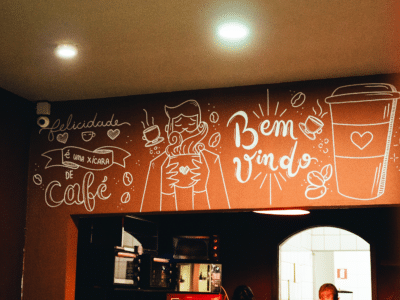 felicidade
é uma xícara
de
Café
Bem
vindo